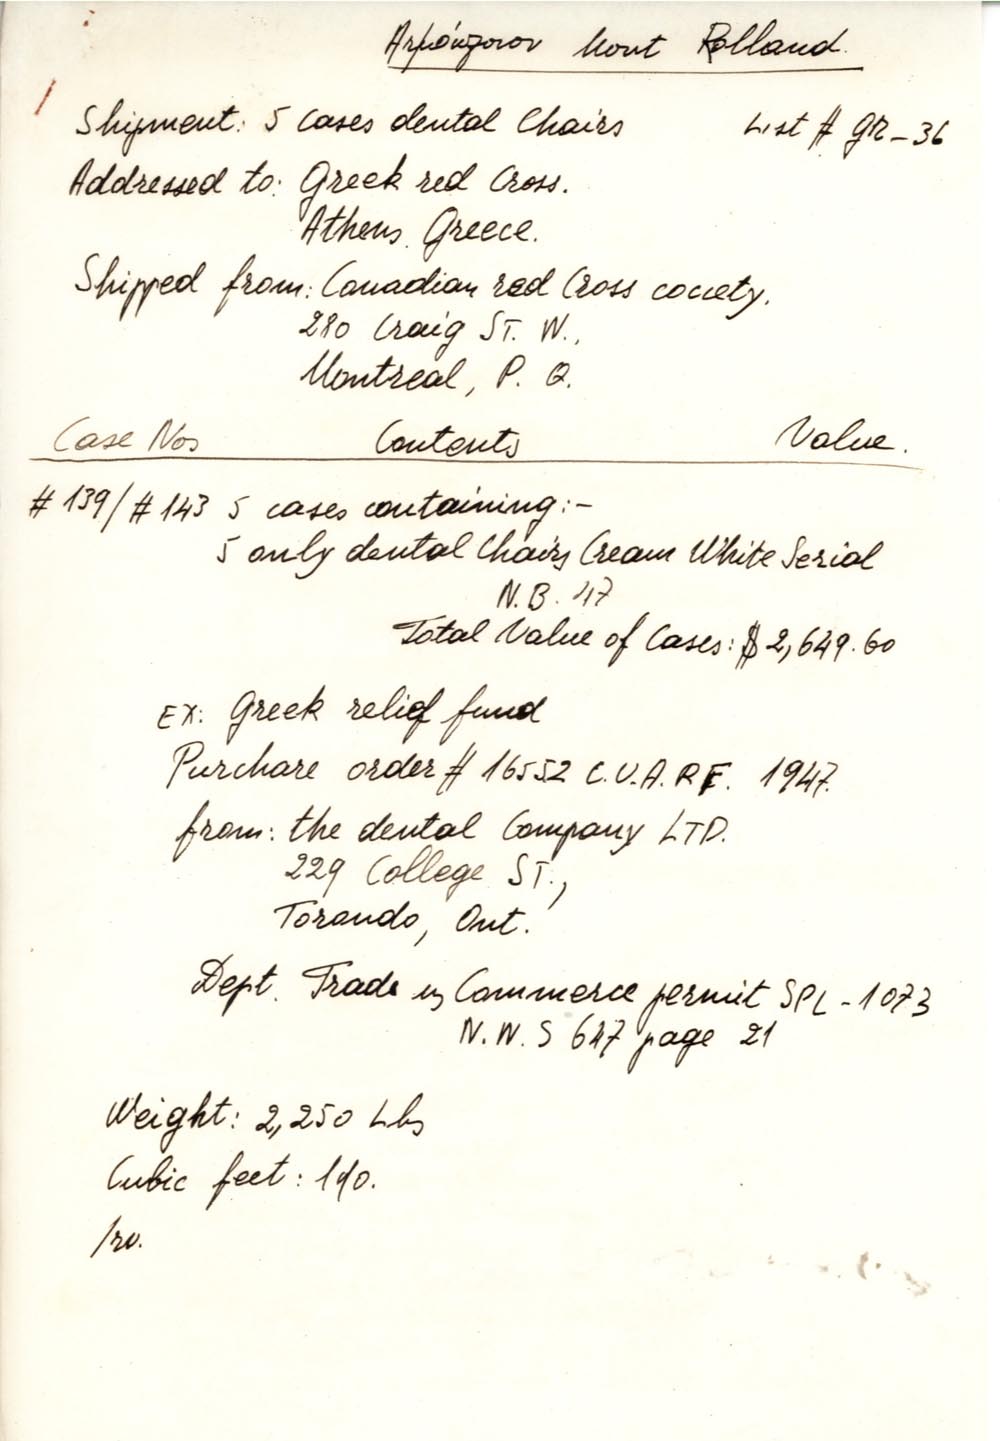 Ατμόπλοιον Mont Rolland.
Shipment: 5 cases dental Chairs List # GR-36
Addressed to: Greek red Cross.
Athens, Greece.
Shipped from: Canadian red Cross cociety.
280 Craig ST. W.,
Montreal, P. Q.
Case Nos Contents Value.
# 139/# 143 5 cases containing:-
5 only dental Chairs Cream White Serial
N.B. 47
Total Value of Cases: $ 2,649.60
EX: Greek relief fund
Purchare order # 16552 C.U.A.R.F. 1947.
from: the dental Company LTD.
229 College ST.,
Torando, Ont.
Dept. Trade Commerce permit SPL-1073
N.W.S 647 page 21
Weight: 2,250 Lbs
Cubic feet: